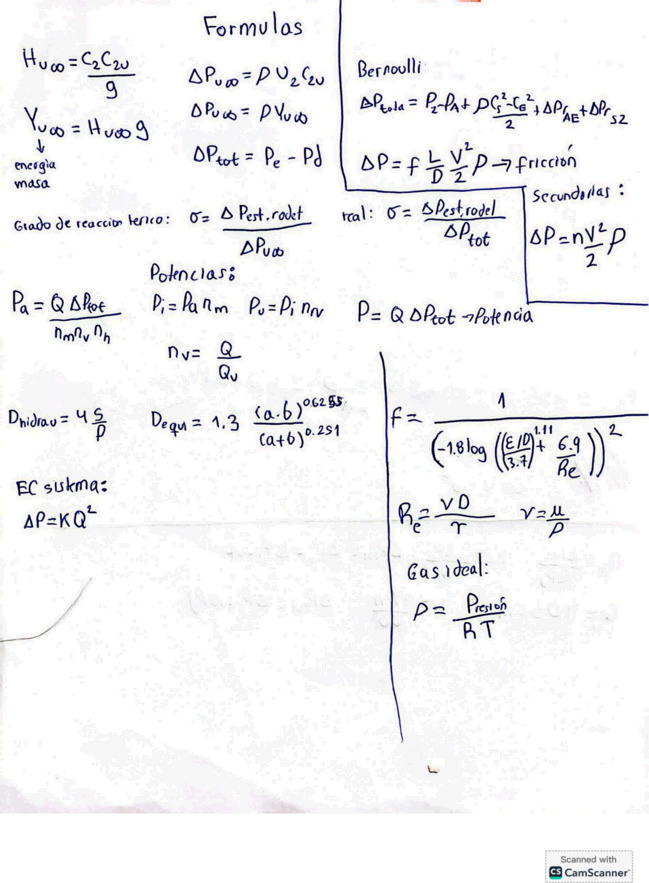 Formulas
H∪∞ = C₂C₂υ / g
Y∪∞ = H∪∞ g
↓
energia
masa
ΔP∪∞ = ρ U₂ C₂υ
ΔP∪∞ = ρ Y∪∞
ΔPtot = Pe - Pd
Bernoulli:
ΔPtola = P₂-PA + ρ Cs²-CE² / 2 + ΔPrAE + ΔPrS2
ΔP = f L/D V²/2 ρ → fricción
Secundarias:
ΔP = n V²/2 ρ
Grado de reaccion terico: σ = ΔPest.rodet / ΔP∪∞
real: σ = ΔPest,rodel / ΔPtot
Potencias:
Pa = Q ΔPtot / nm nv nh
Pi = Pa nm
Pu = Pi nrv
P = Q ΔPtot → Potencia
nv = Q / Qu
Dhidrau = 4 S/P
Dequ = 1.3 (a.b)^0.6255 / (a+b)^0.251
EC sistma:
ΔP = KQ²
f = 1 / (-1.8 log ((ε/D / 3.7)^1.11 + 6.9/Re))²
Re = VD / r
v = μ/ρ
Gas ideal:
ρ = Presión / RT
Scanned with
CS CamScanner